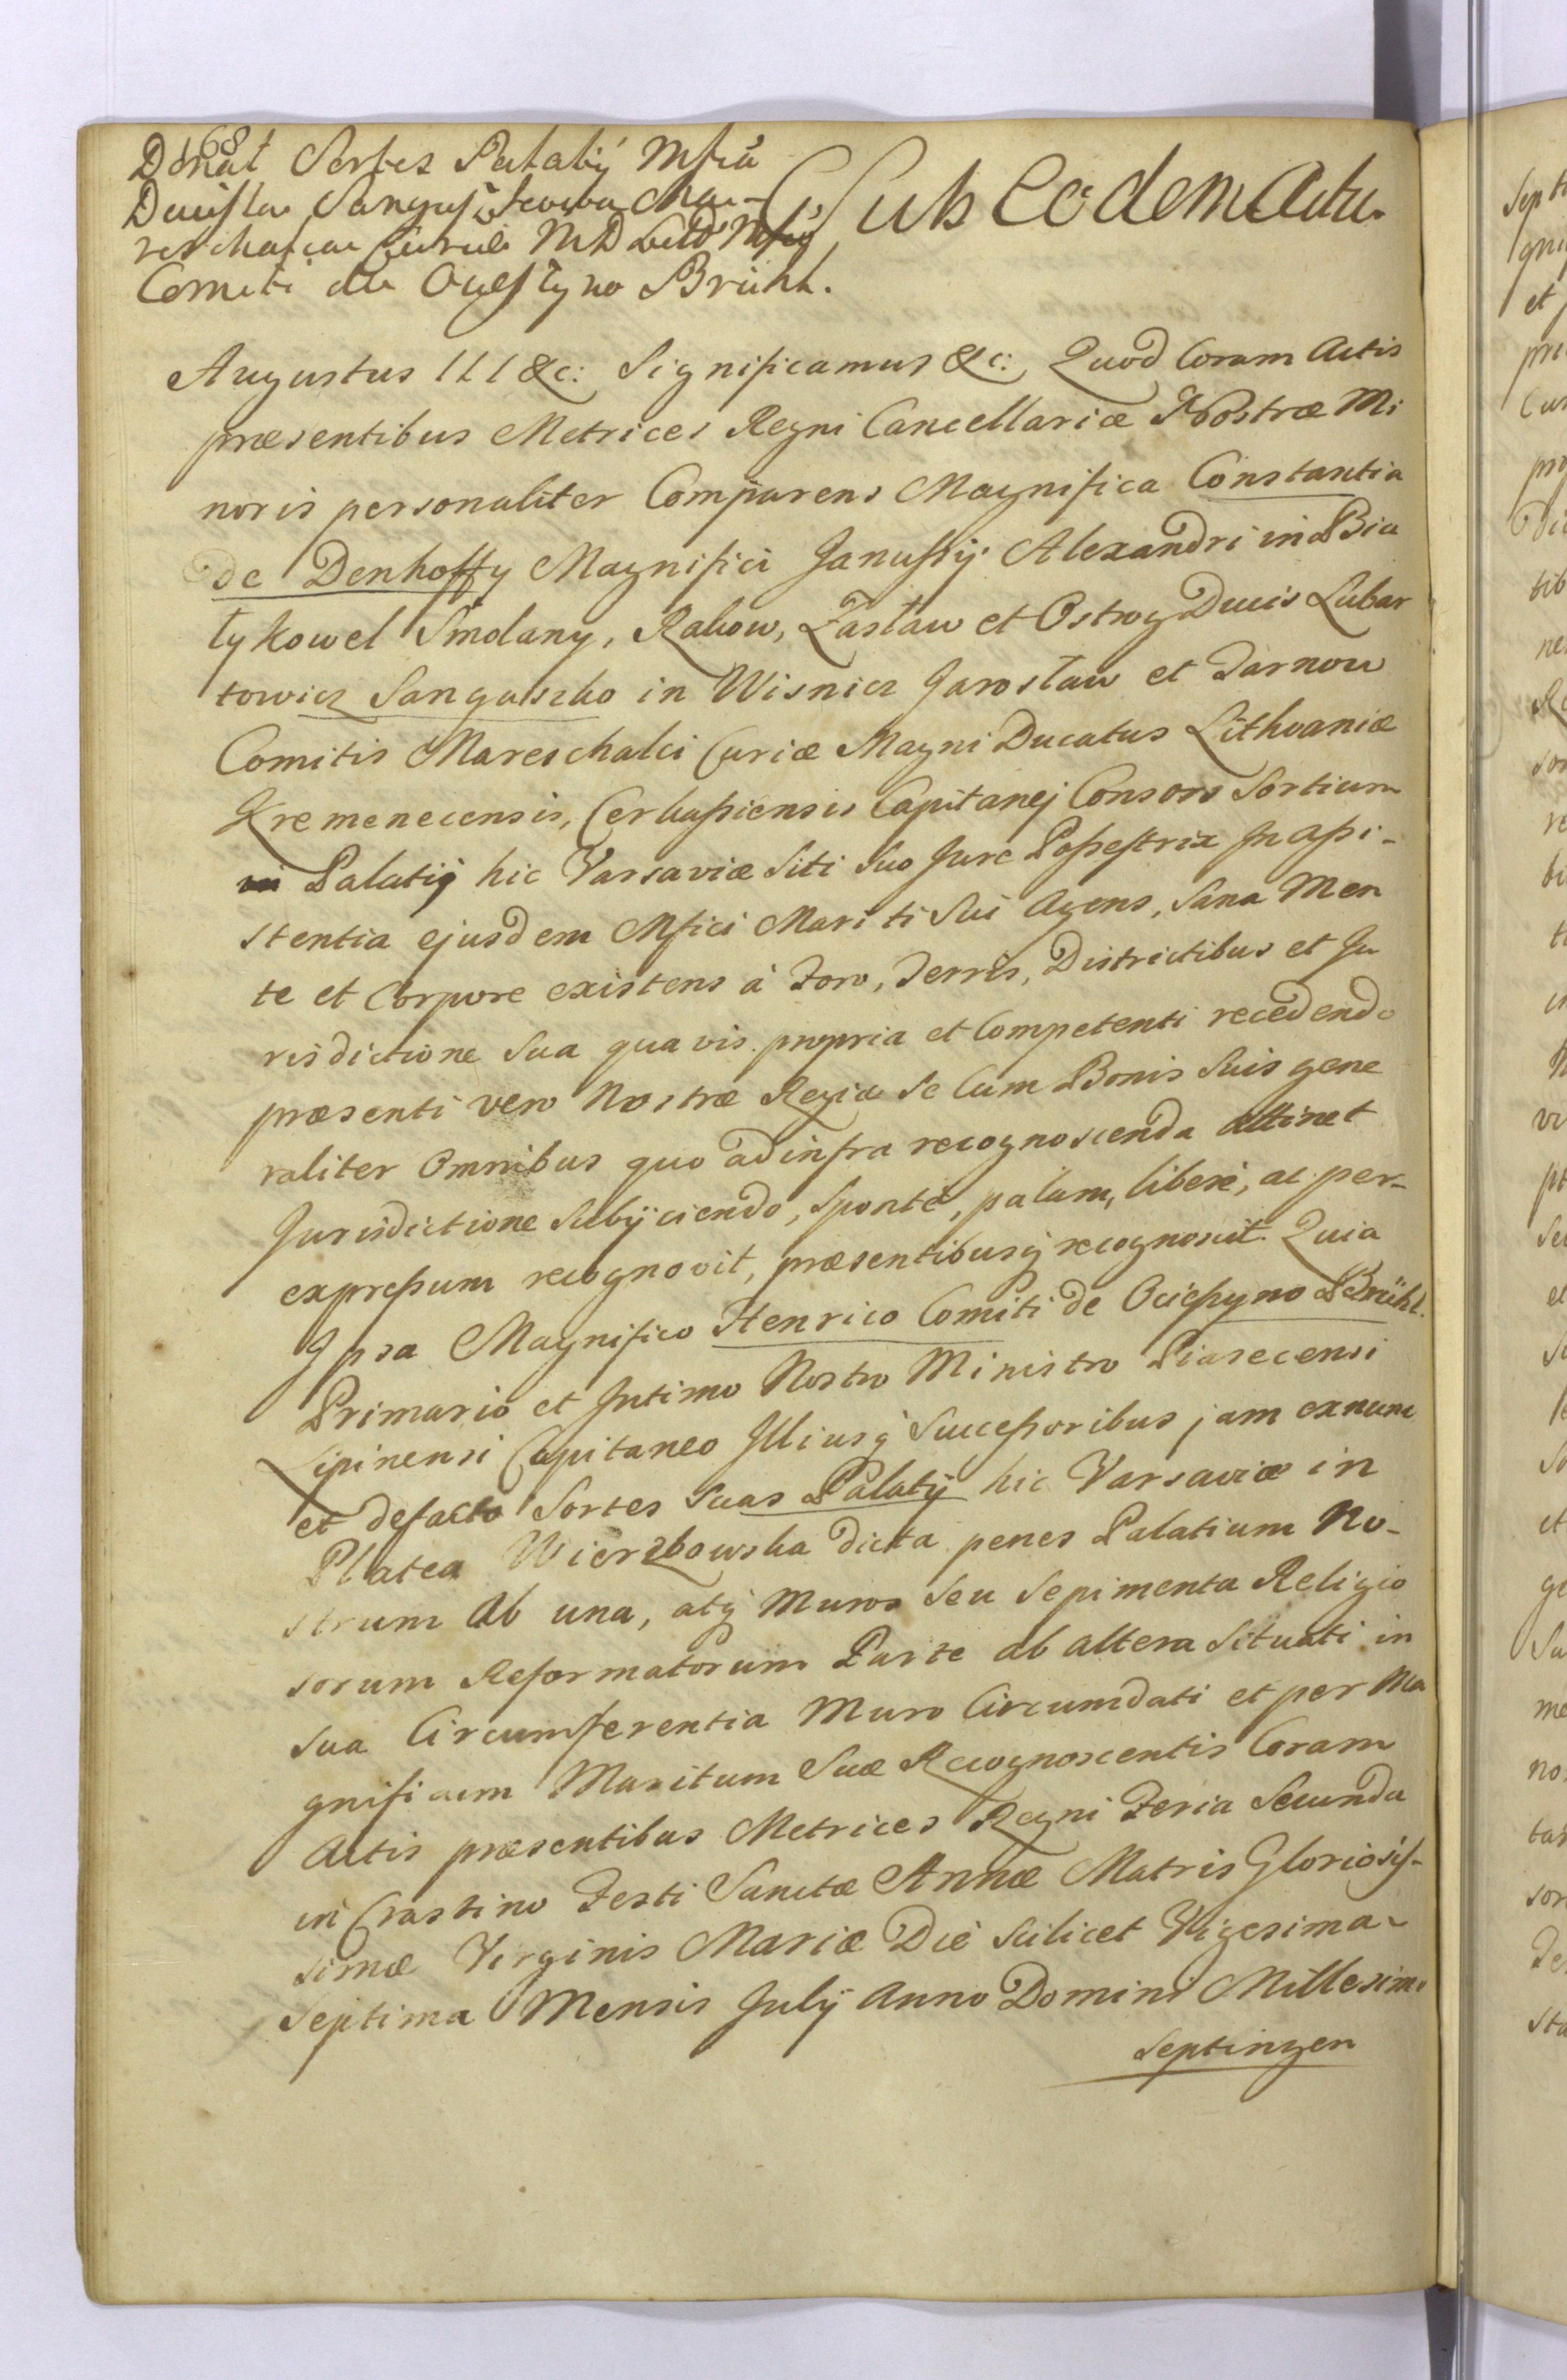 168
Donat Sortes Palatij Mfca
Ducissa Sanguszkowa Ma-
reschalca Curiæ M D Litt Mfco
Comiti de Ocieszyno Brühl.
Sub Eodem Actu.
Augustus III &c: Significamus &c: Quod Coram Actis
præsentibus Metrices Regni Cancellariæ Nostræ Mi
noris personaliter Comparens Magnifica Constantia
de Denhoffy Magnifici Janussij Alexandri in Bia
ły Kowel Smolany, Rakow, Zasław et Ostrog Ducis Lubar
towicz Sanguszko in Wisnicz Jarosław et Tarnow
Comitis Mareschalci Curiæ Magni Ducatus Lithvaniæ
Kremenecensis, Cerkassiensis Capitanej Consors Sortium
Palatij hic Varsaviæ Siti Suo Jure Possestrix In assi-
stentia ejusdem Mfici Mariti Sui Agens, Sana Men
te et Corpore existens à Foro, Terris, Districtibus et Ju
risdictione Sua quavis propria et Competenti recedendo
præsenti vero Nostræ Regiæ Se Cum Bonis Suis gene
raliter Omnibus quo ad infra recognoscenda attinet
Jurisdictione Subijciendo, Sponte, palam, libere, ac per-
expressum recognovit, præsentibusq recognoscit Quia
Ipsa Magnifico Henrico Comiti de Ociessyno Brühl.
Primario et Intimo Nostro Ministro Piasecensi
Lipinensi Capitaneo Illiusq Successoribus jam exnunc
et defacto Sortes Suas Palatij hic Varsaviæ in
Platea Wierzbowska dicta penes Palatium No-
strum Ab una, atq Muros Seu Sepimenta Religio
sorum Reformatorum Parte ab altera Situati in
Sua Circumferentia Muro Circumdati et per Ma
gnificum Maritum Suæ Recognoscentis Coram
Actis præsentibus Metrices Regni Feria Secunda
in Crastino Festi Sanctæ Annæ Matris Gloriosis-
simæ Virginis Mariæ Die Scilicet Vigesima-
Septima Mensis Julij Anno Domini Millesimo
Septingen